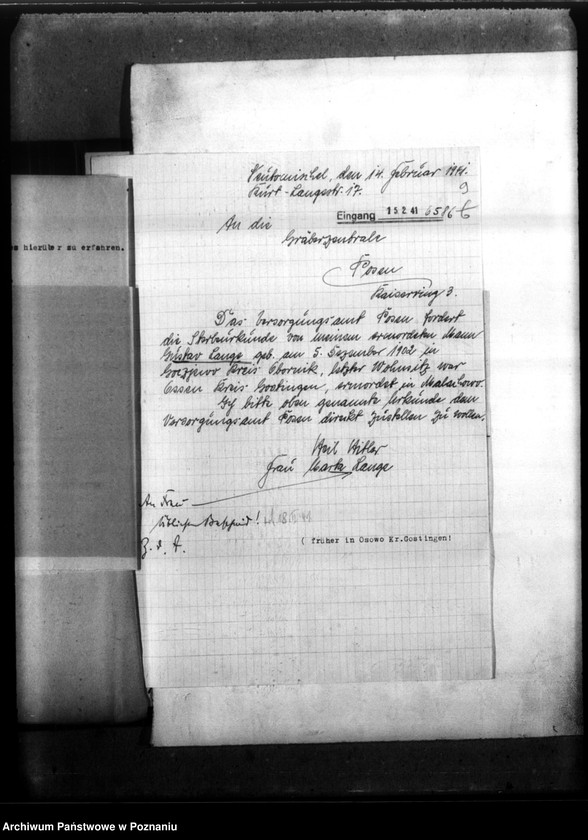 Neutomischel, den 14. Februar 1941.
Kurt-Langestr. 17.
9
Eingang 15.2.41 6586
An die
Gräberzentrale
Posen
Kaiserring 3.
es hierüber zu erfahren.
Das Versorgungsamt Posen fordert
die Sterburkünde von meinem ermordeten Mann
Gustav Lange geb. am 5. Dezember 1902 in
Kreis Obornik, letzter Wohnsitz war
Essen Kreis Gostingen, ermordet in Malachowo.
Ich bitte oben genannte Urkünde dem
Versorgungsamt Posen direkt zuzstellen zu wollen.
Heil Hitler
Frau Marta Lange
An Frau
üblichen Bescheid!
Z. d. A.
( früher in Osowo Kr.Gostingen!
Archiwum Państwowe w Poznaniu